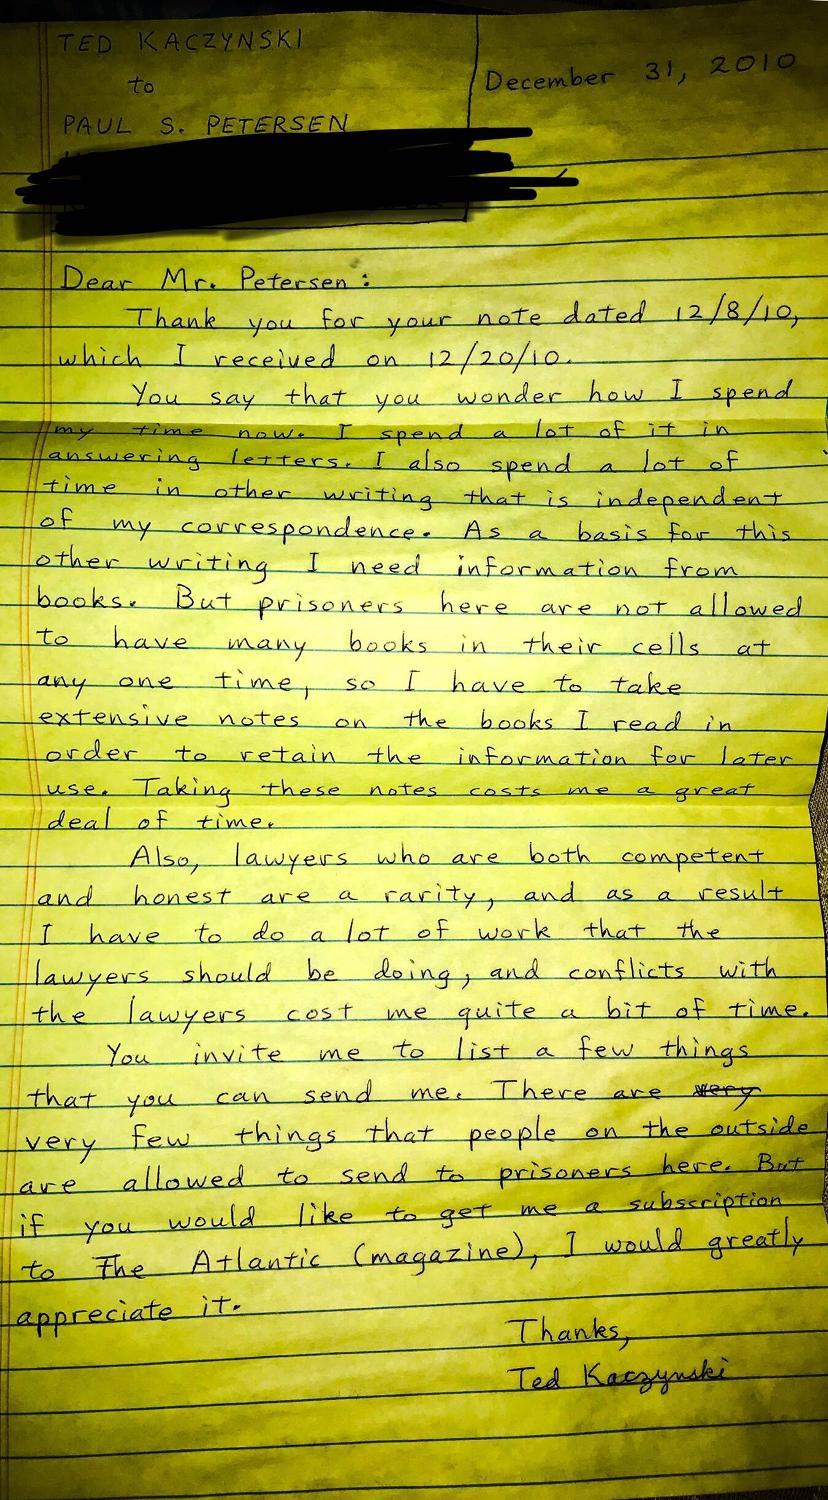 TED KACZYNSKI
to
PAUL S. PETERSEN
December 31, 2010
Dear Mr. Petersen:
Thank you for your note dated 12/8/10,
which I received on 12/20/10.
You say that you wonder how I spend
my time now. I spend a lot of it in
answering letters. I also spend a lot of
time in other writing that is independent
of my correspondence. As a basis for this
other writing I need information from
books. But prisoners here are not allowed
to have many books in their cells at
any one time, so I have to take
extensive notes on the books I read in
order to retain the information for later
use. Taking these notes costs me a great
deal of time.
Also, lawyers who are both competent
and honest are a rarity, and as a result
I have to do a lot of work that the
lawyers should be doing, and conflicts with
the lawyers cost me quite a bit of time.
You invite me to list a few things
that you can send me. There are very
very few things that people on the outside
are allowed to send to prisoners here. But
if you would like to get me a subscription
to The Atlantic (magazine), I would greatly
appreciate it.
Thanks,
Ted Kaczynski